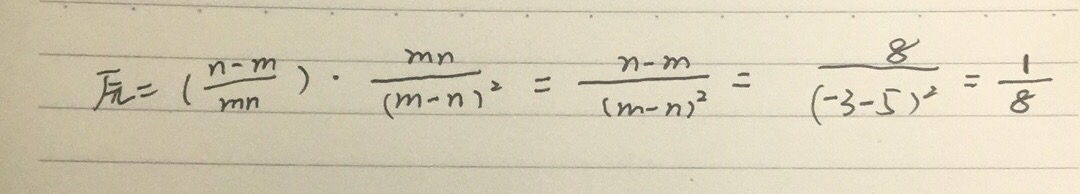 原=(\frac{n-m}{mn})·\frac{mn}{(m-n)^2}=\frac{n-m}{(m-n)^2}=\frac{8}{(-3-5)^2}=\frac{1}{8}